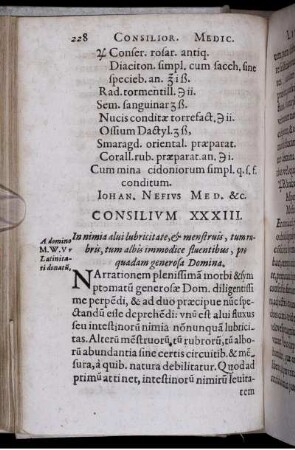 228 CONSILIOR. MEDIC.
♃ Conser. rosar. antiq.
Diaciton. simpl. cum sacch. sine
specieb. an. ℥ i ß.
Rad. tormentill. ℈ ii.
Sem. sanguinar ʒ ß.
Nucis conditæ torrefact. ℈ ii.
Ossium Dactyl. ʒ ß,
Smaragd. oriental. præparat.
Corall. rub. præparat. an. ℈ i.
Cum mina cidoniorum simpl. q. s. f.
conditum.
IOHAN. NEFIVS MED. &c.
CONSILIVM XXXIII.
A domino
M. W. V
Latinita-
ti donatũ,
In nimia alui lubricitate, & menstruis, tum ru-
bris, tum albis immodice fluentibus, pro
quadam generosa Domina,
NArrationem plenißimã morbi & sym
ptomatũ generosæ Dom. diligentißi-
me perpẽdi, & ad duo præcipue nũc spe-
ctandũ esse deprehẽdi: vnũ est alui fluxus
seu intestinorũ nimia nõnunquã lubrici-
tas. Alterũ mẽstruorũ, tũ rubrorũ, tũ albo-
rũ abundantia sine certis circuitib. & mẽ-
sura, à quib. natura debilitatur. Quod ad
primũ attinet, intestinorũ nimirũ leuita-
tem